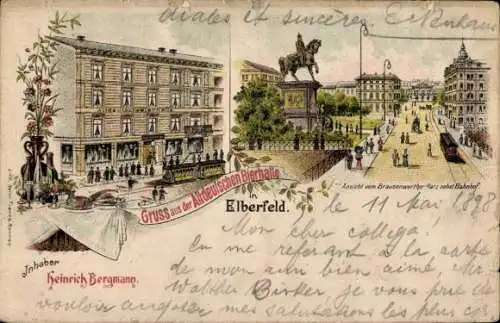 diales et sincères
Gruss aus der Altdeutschen Bierhalle
in
Elberfeld.
Ansicht vom Brausenwerther Platz nebst Bahnhof
Inhaber
Heinrich Bergmann.
le 11 Mai 1898
Mon cher collega!
En me referant à la carte
de mon bien aimé, Mr.
Walther Birker, je vous prie de
vouloir
mes salutations les plus cor